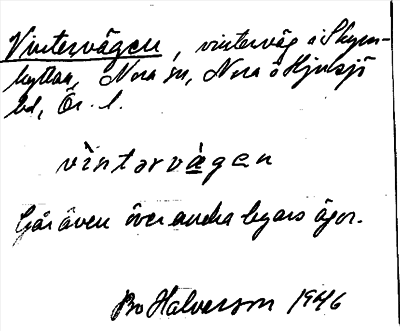 Vintervägen, vinterväg i Skym-
hyttan, Nora sn, Nora o Hjulsjö
bd, Ör. l.
vìntərvä̀gen
Går även över andra byars ägor.
Bo Halverson 1946